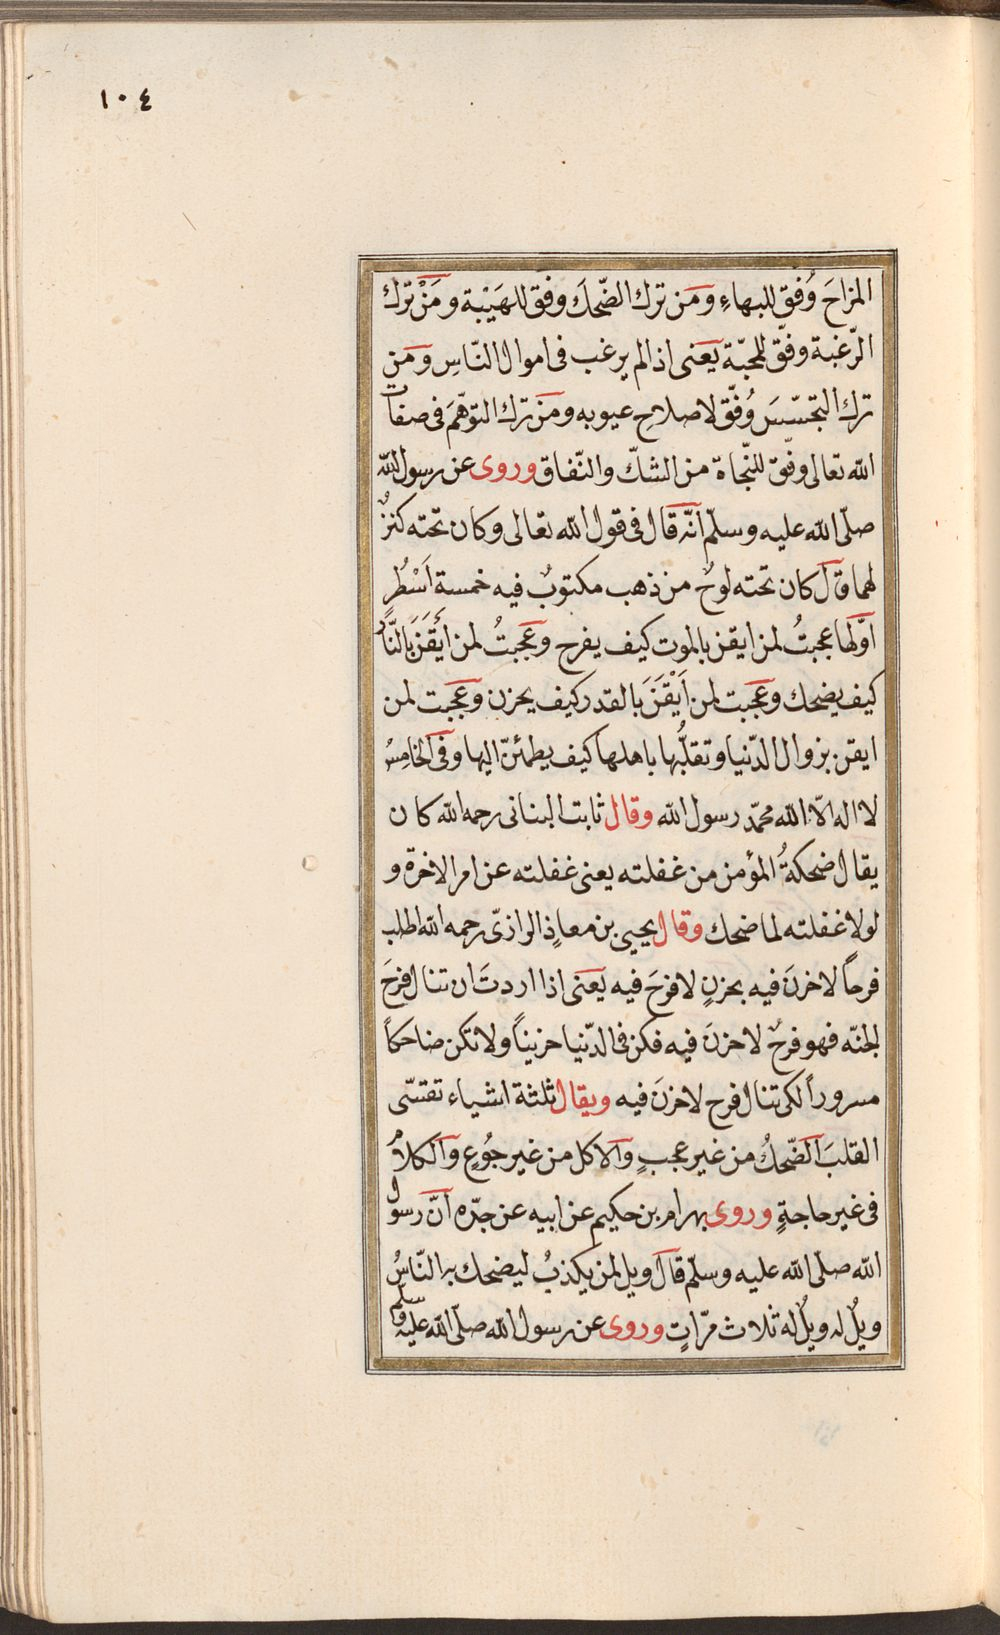 ١٠٤
المزاحَ وُفّق للبهاءِ ومَن ترك الضّحكَ وفق للهَيْبة ومَنْ ترك
الرّغبة وفّق للمحبّة يعنى اذا لم يرغب فى اموال النّاسِ ومَن
ترك التجسّسَ وُفّق لاصلاحِ عيوبه ومَن ترك التوّهمَ فى صفات
الله تعالى وفّق للنّجاة من الشكّ والنّفاق وروى عن رسول الله
صلّى الله عليه وسلّم انّه قال فى قول الله تعالى وكان تحته كنزٌ
لهما قال كان تحته لوحٌ من ذهب مكتوبٌ فيه خمسة اَسْطُرٍ
اوّلها عجبتُ لمن ايقن بالموت كيف يفرح وعجبتُ لمن أَيقَنَ بالنّارِ
كيف يضحك وعجبت لمن اَيْقَنَ بالقدر كيف يحزن وعجبت لمن
ايقن بزوال الدّنيا وتقلّبُها باهلها كيف يطمئنّ اليها وفى الخامِسُ
لا اله الّا الله محمّد رسول الله وقال ثابت البنانى رحمه الله كان
يقال ضحكةُ المؤمن من غفلته يعنى غفلته عن امر الاخرة و
لولا غفلته لما ضحك وقال يحيى بن معاذٍ الرازىّ رحمه الله اطلب
فرحاً لا حزنَ فيه بحزنٍ لا فرحَ فيه يعنى اذا اردتَ ان تنال فرحَ
الجنّه فهو فرحٌ لا حزنَ فيه فكن فى الدّنيا حزيناً ولا تكن ضاحكاً
مسروراً لكى تنال فرح لا حزنَ فيه ويقال ثلثة اشياء تقسّى
القلبَ الضّحكُ من غير عجبٍ والاكل من غير جُوعٍ والكلامُ
فى غير حاجةٍ وروى بهرام بن حكيم عن ابيه عن جدّه انّ رسول
الله صلّى الله عليه وسلّم قال ويل لمن يكذبُ ليضحك به النّاسُ
ويلٌ له ويلٌ له ثلاث مرّاتٍ وروى عن رسول الله صلّى الله عليه وسلّم